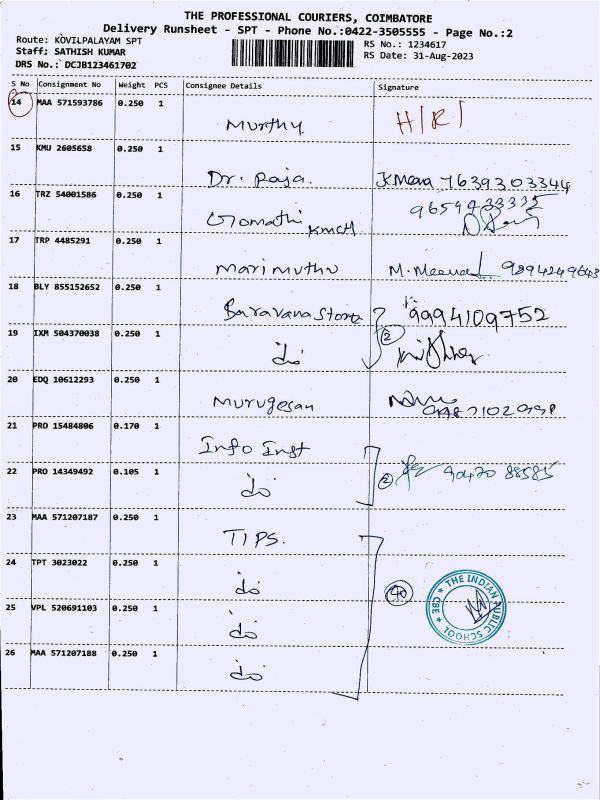 THE PROFESSIONAL COURIERS, COIMBATORE
Delivery Runsheet - SPT - Phone No.:0422-3505555 - Page No.:2
Route: KOVILPALAYAM SPT
Staff; SATHISH KUMAR
DRS No.: DCJB123461702
RS No.: 1234617
RS Date: 31-Aug-2023
S No Consignment No Weight PCS Consignee Details Signature
14 MAA 571593786 0.250 1
Murthy H/R/
15 KMU 2605658 0.250 1
Dr. Raja. K Meera 7639303344
16 TRZ 54001586 0.250 1
Gomathi KMCH 9659433335
17 TRP 4485291 0.250 1
Marimuthu M. Meena 9894249643
18 BLY 855152652 0.250 1
Saravana Store 9994109752
19 IXM 504370038 0.250 1
do 2
20 EDQ 10612293 0.250 1
Murugesan
21 PRO 15484806 0.170 1
Info Inst
22 PRO 14349492 0.105 1
do 2 90470 88585
23 MAA 571207187 0.250 1
TIPS.
24 TPT 3023022 0.250 1
do
25 VPL 520691103 0.250 1
do
26 MAA 571207188 0.250 1
do
THE INDIAN PUBLIC SCHOOL
CBE